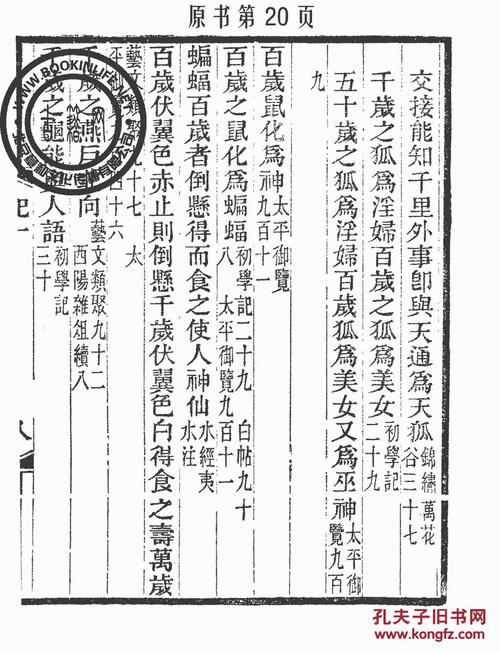 原书第20页
交接能知千里外事卽與天通爲天狐錦繡萬花谷三十七
千歲之狐爲淫婦百歲之狐爲美女初學記二十九
五十歲之狐爲淫婦百歲狐爲美女又爲巫神太平御覽九百
九
百歲鼠化爲神太平御覽九百十一
百歲之鼠化爲蝙蝠初學記二十九 白帖九十八 太平御覽九百十一
蝙蝠百歲者倒懸得而食之使人神仙水經夷水注
百歲伏翼色赤止則倒懸千歲伏翼色白得食之壽萬歲
藝文類聚九十七 太平
四十六
歲之燕戶 向藝文類聚九十二 酉陽雜俎續八
歲之 能人語初學記三十
WWW.BOOKINLIFE
孔夫子旧书网
www.kongfz.com